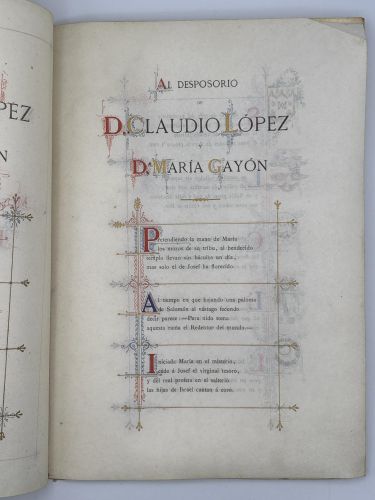 OPEZ
N
AL DESPOSORIO
DE
D. CLAUDIO LÓPEZ
D.ª MARÍA GAYÓN
Pretendiendo la mano de María
los mozos de su tribu, al bendecido
templo llevan sus báculos un día,
mas solo el de Josef ha florecido.
Al tiempo en que bajando una paloma
de Salomón al vástago fecundo
decir parece:—Para nido toma
aquesta rama el Redentor del mundo.—
Iniciado María en el misterio,
á Josef el virginal tesoro,
y del real profeta en el salterio
las hijas de Israel cantan á coro.